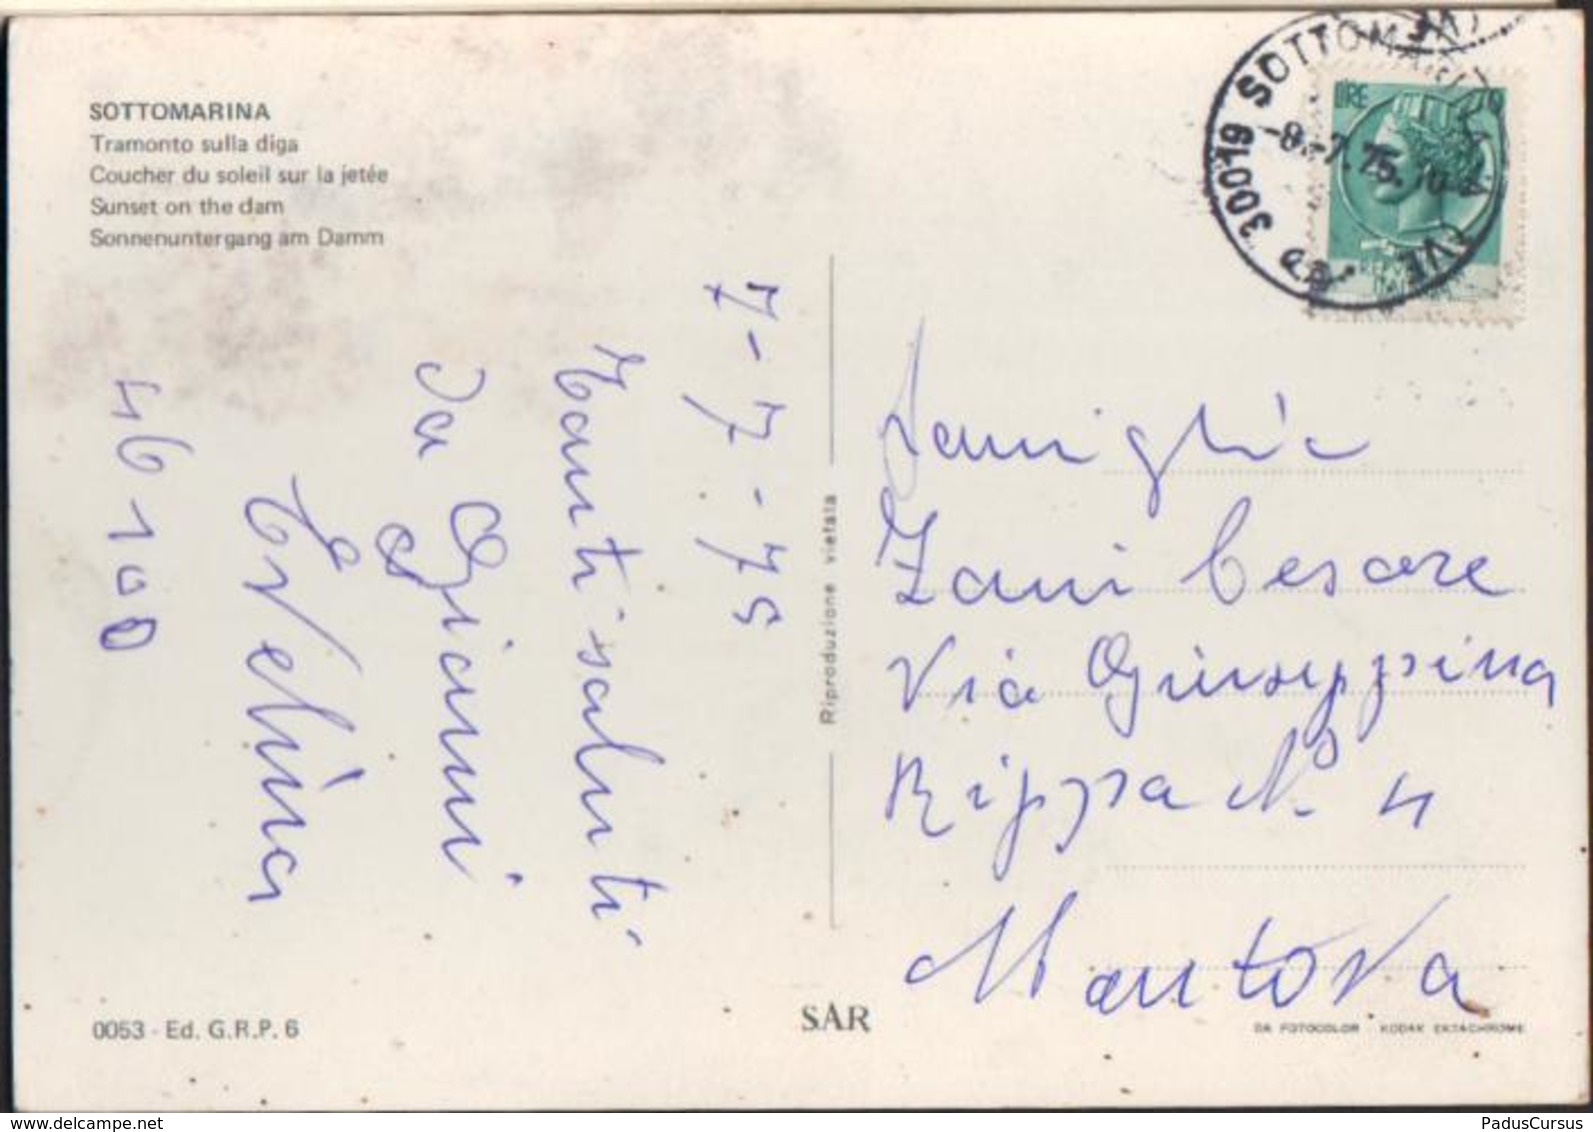 SOTTOMARINA
Tramonto sulla diga
Coucher du soleil sur la jetée
Sunset on the dam
Sonnenuntergang am Damm
30019 SOTTOMARINA
-8.-7.75
VE
LIRE
7-7-75
Tanti saluti
da Gianni
e Evelina
46100
Riproduzione vietata
Famiglia
Zani Cesare
Via Giuseppina
Rippa N° 4
Mantova
0053 - Ed. G.R.P. 6
SAR
DA FOTOCOLOR KODAK EKTACHROME
delcampe.net
PadusCursus